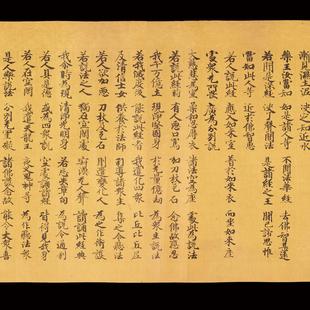 漸見濕土泥 決定知近水
藥王汝當知 如是諸人等 不聞法華經 去佛智甚遠
若聞是深經 決了聲聞法 是諸經之王 聞已諦思惟
當知此人等 近於佛智慧
若人說此經 應入如來室 著於如來衣 而坐如來座
處衆無所畏 廣為分別說
大慈悲為室 柔和忍辱衣 諸法空為座 處此為說法
若說此經時 有人惡口罵 加刀杖瓦石 念佛故應忍
我千万億土 現淨堅固身 於無量億劫 為衆生說法
若我滅度後 能說此經者 我遣化四衆 比丘比丘尼
及清信士女 供養於法師 引導諸衆生 集之令聽法
若人欲加惡 刀杖及瓦石 則遣變化人 為之作衛護
若說法之人 獨在空閑處 寂寞無人聲 讀誦此經典
我爾時為現 清淨光明身 若忘失章句 為說令通利
若人具是德 或為四衆說 空處讀誦經 皆得見我身
若人在空閑 我遣天龍王 夜叉鬼神等 為作聽法衆
是人樂說法 分別無罣礙 諸佛護念故 能令大衆喜